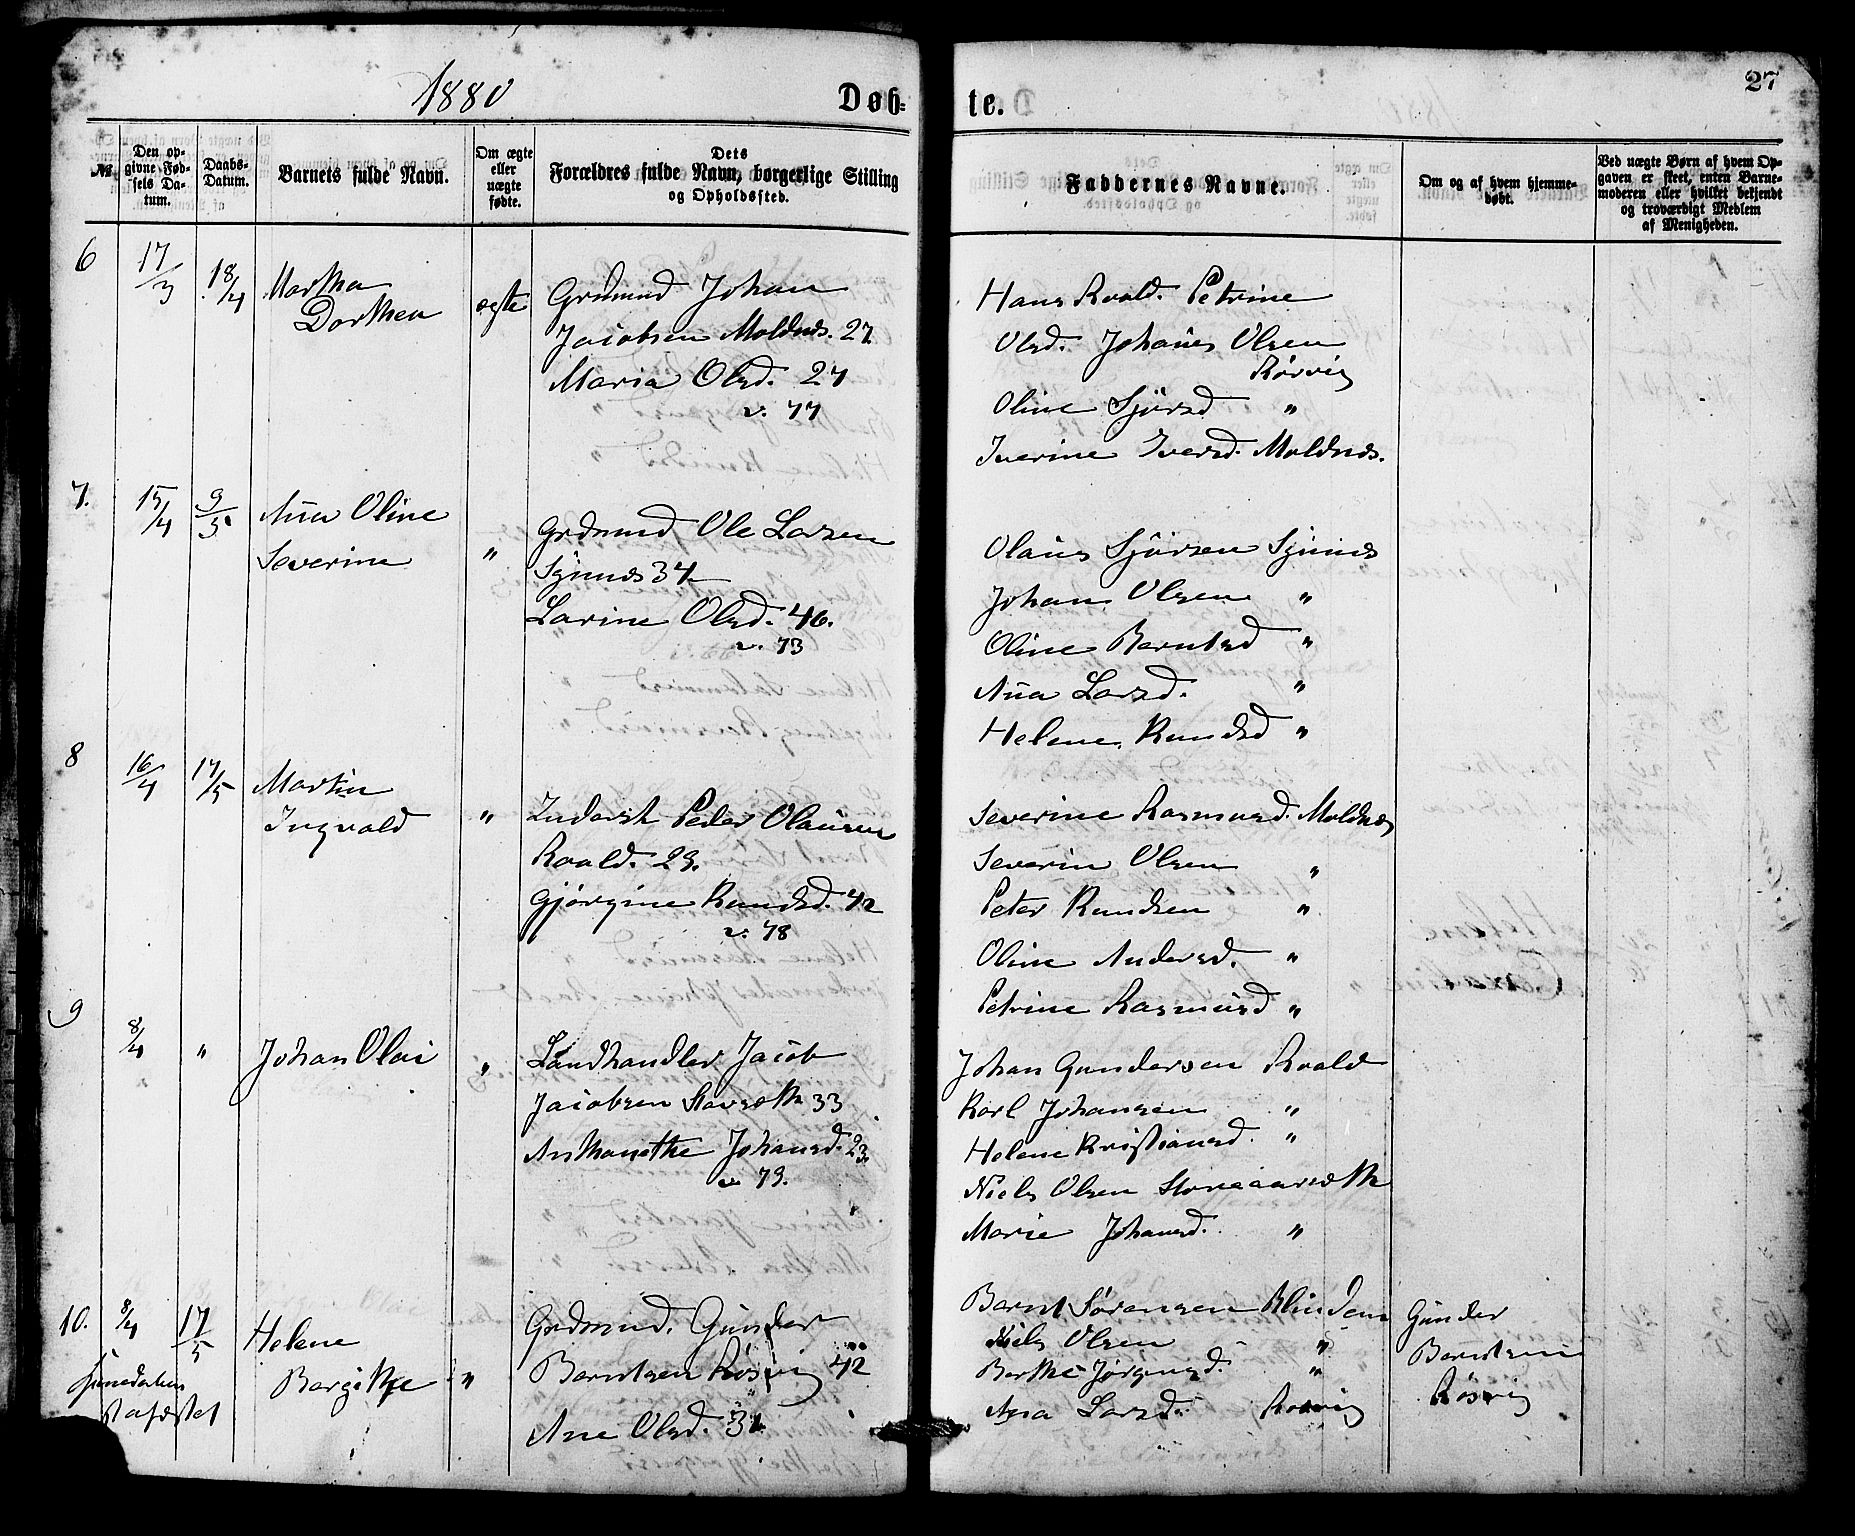 1880
Døb-
te.
27
№
Den op-
givne Fød-
sels Da-
tum.
Daabs-
Datum.
Barnets fulde Navn.
Om ægte
eller
uægte
fødte.
Dets
Forældres fulde Navn, borgerlige Stilling
og Opholdssted.
Faddernes Navne.
Om og af hvem hjemme-
døbt.
Ved uægte Børn af hvem Op-
gaven er skeet, enten Barne-
moderen eller hvilket bekjendt
og troværdigt Medlem
af Menigheden.
6
17/3
18/4
Martha
Dorthea
ægte
Grdmand Johan
Jacobsen Moldnæs. 27
Maria Olsd. 27
v. 77
Hans Roald. Petrine
Olsd. Johanes Olsen
Rørvig
Oline Sjørsd "
Iverine Iversd. Moldnæs.
7.
15/4
9/5
Ana Oline
Severine
"
Grdmand Ole Larsen
Synnæs 34
Larine Olsd. 46.
v. 73
Olaus Sjørsen Synnæs
Johan Olsen "
Oline Berntsd "
Ana Larsd. "
Helene Knudsd "
8
16/4
17/5
Martin
Ingvald
"
Inderst Peder Olausen
Roald. 29.
Gjørgine Knudsd. 42
v. 78
Severine Rasmusd. Moldnæs
Severin Olsen "
Peter Knudsen "
Oline Andersd. "
Petrine Rasmusd "
9
8/4
"
Johan Olai
"
Landhandler Jacob
Jacobsen Storsæth 33
Anthonethe Johansd. 23.
v. 79.
Johan Gundersen Roald
Karl Johansen "
Helene Kristiansd. "
Niels Olsen
Marie Johansd. "
10.
8/4
17/5
Helene
Bergithe
"
Grdmand. Gunder
Berntsen Røsvig 42
Ane Olsd. 31
Bernt Sørensen Blindem
Niels Olsen "
Berthe Jørgensd. "
Ana Larsd. Rørvig
Gunder
Berntsen
Røsvig